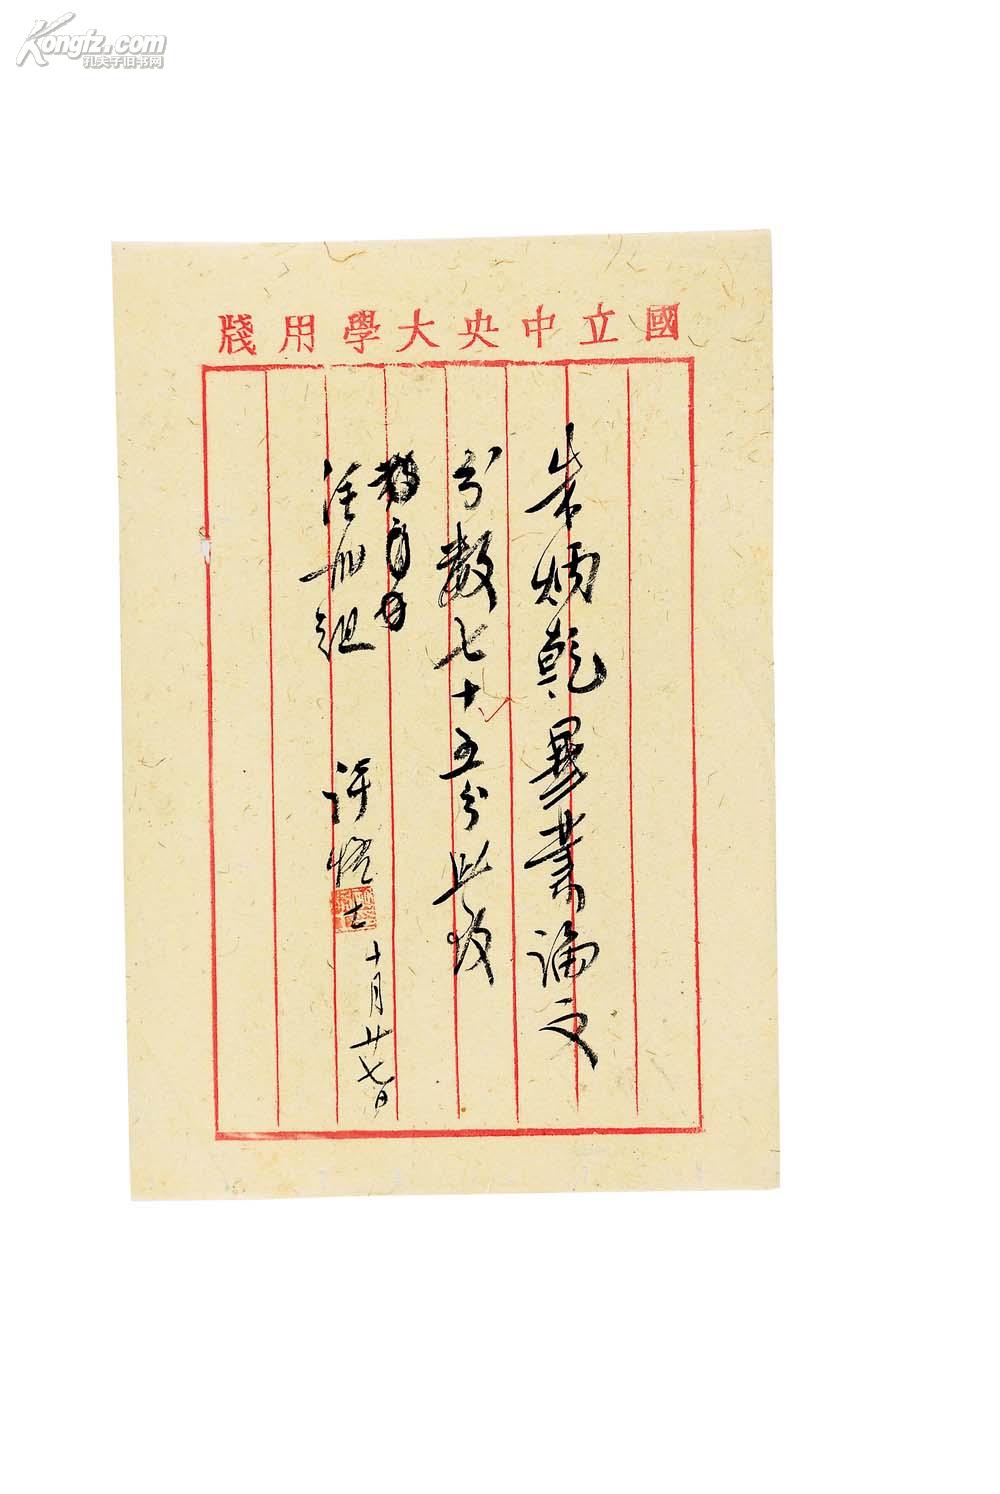 Kongfz.com
孔夫子旧书网
國立中央大學用牋
朱炳乾畢業論文
分數七十五分此致
註冊組
許恪士
十月廿七日